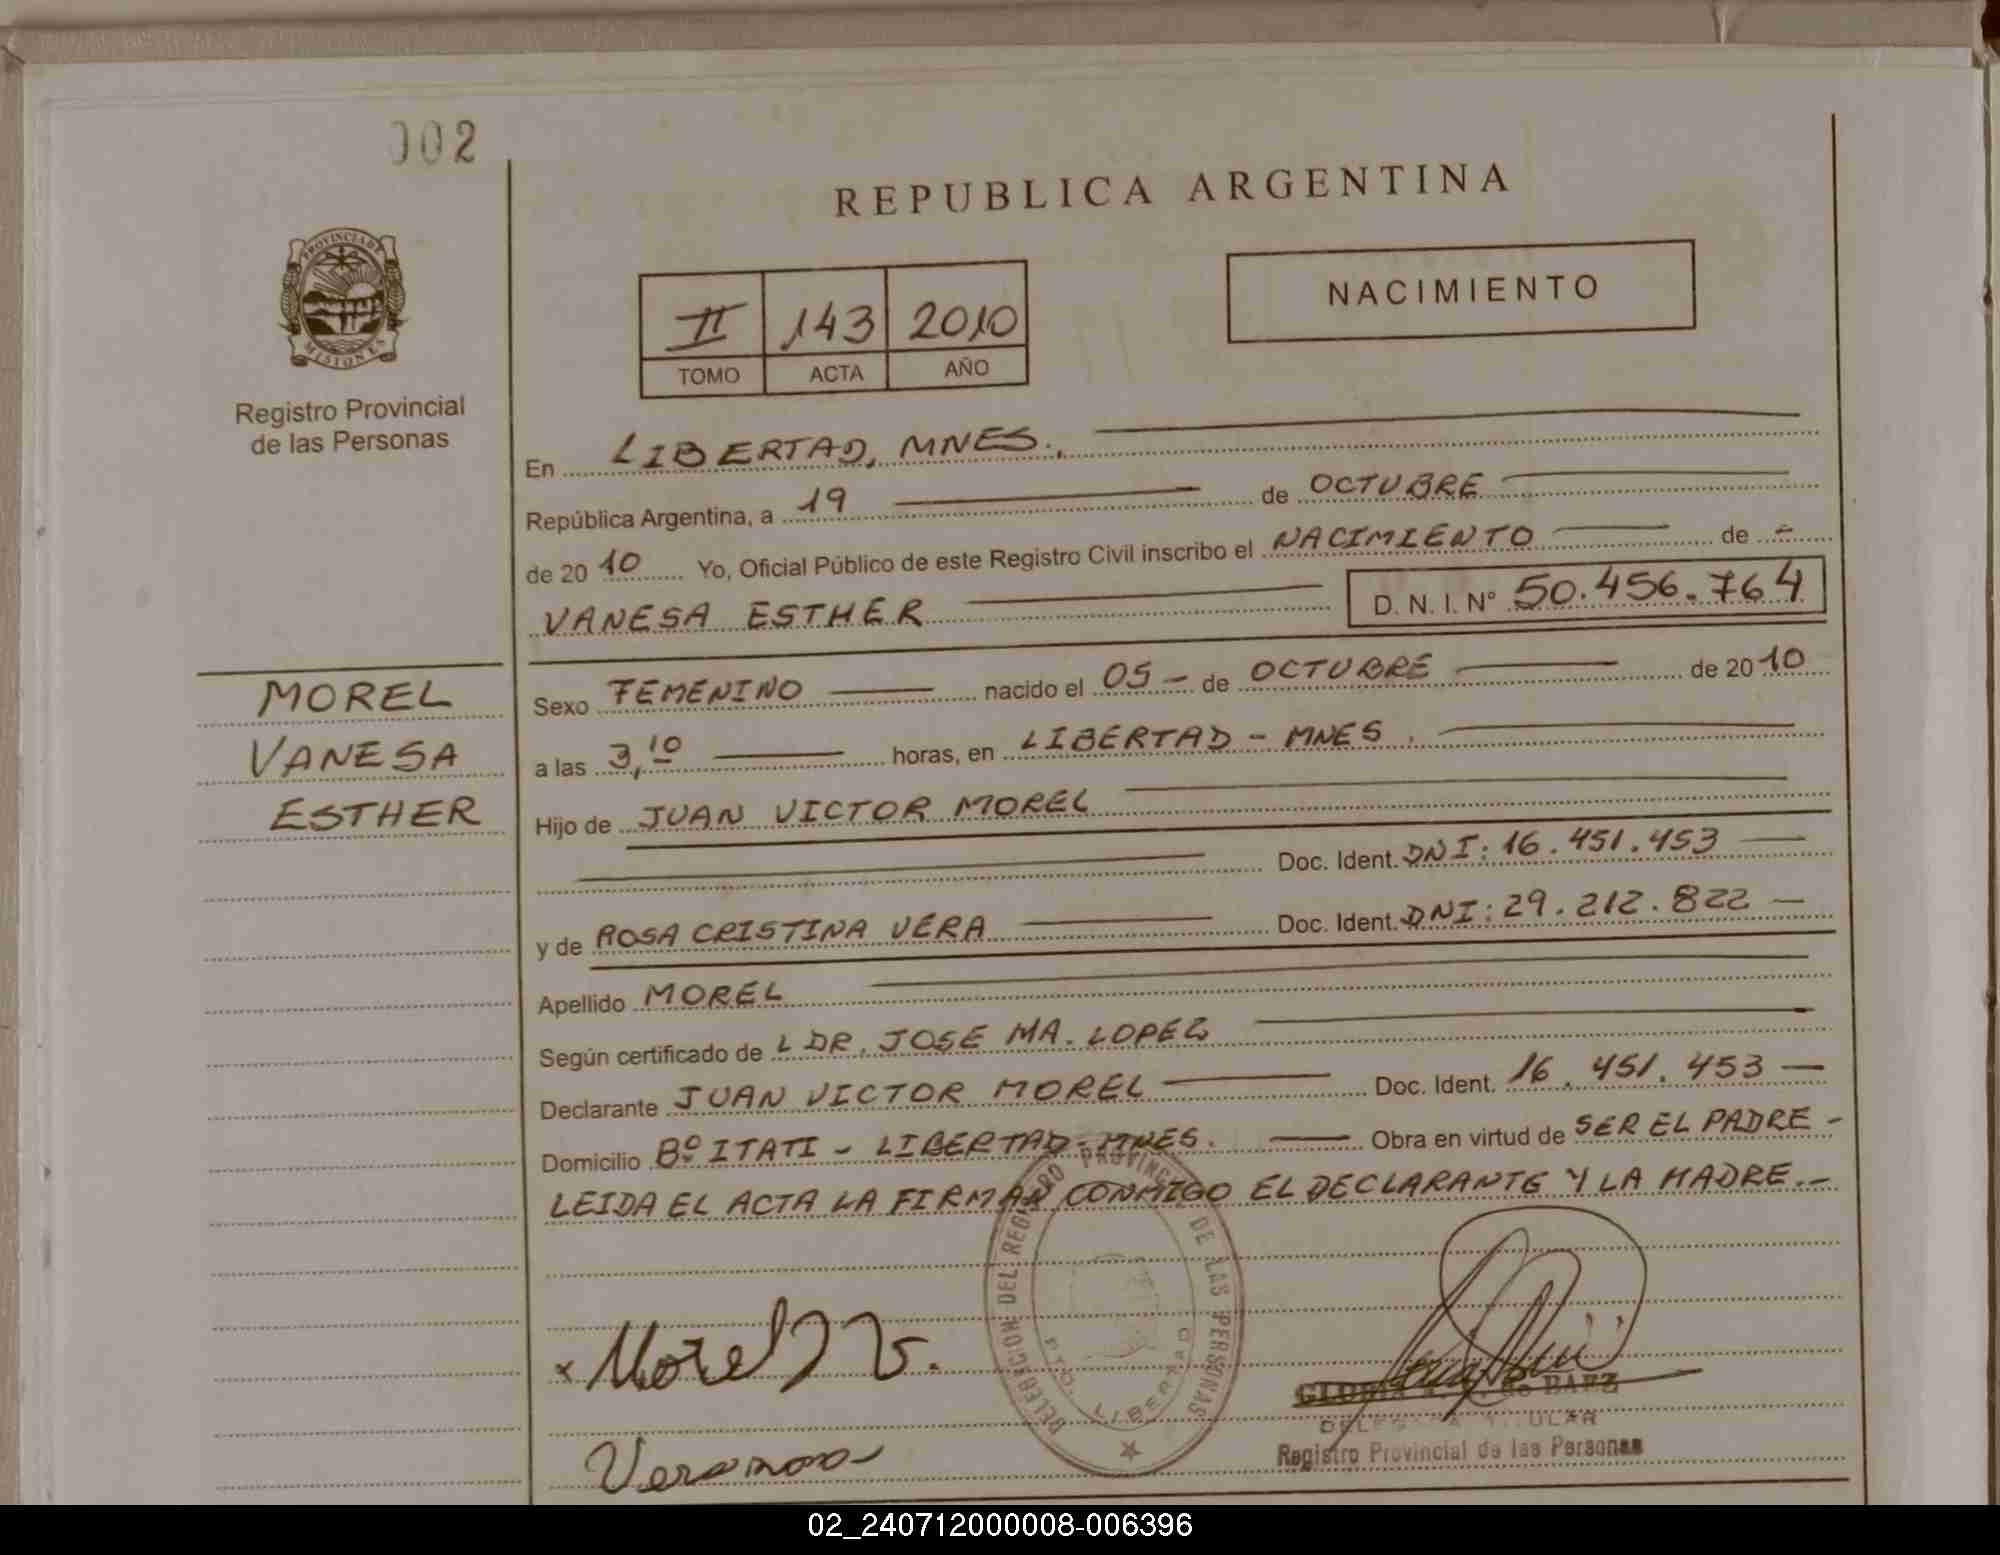 002
REPUBLICA ARGENTINA
PROVINCIA DE
MISIONES
Registro Provincial
de las Personas
II 143 2010
TOMO ACTA AÑO
NACIMIENTO
En LIBERTAD, MNES.
República Argentina, a 19 de OCTUBRE
de 2010 Yo, Oficial Público de este Registro Civil inscribo el NACIMIENTO de -
VANESA ESTHER D. N. I. Nº 50.456.764
MOREL
VANESA
ESTHER
Sexo FEMENINO nacido el 05 - de OCTUBRE de 2010
a las 3,10 horas, en LIBERTAD - MNES.
Hijo de JUAN VICTOR MOREL
Doc. Ident. DNI: 16.451.453
y de ROSA CRISTINA VERA Doc. Ident. DNI: 29.212.822 -
Apellido MOREL
Según certificado de L DR. JOSE MA. LOPEZ
Declarante JUAN VICTOR MOREL Doc. Ident. 16.451.453 -
Domicilio Bº ITATI - LIBERTAD - MNES. Obra en virtud de SER EL PADRE -
LEIDA EL ACTA LA FIRMAN CONMIGO EL DECLARANTE Y LA MADRE.-
DELEGACION DEL REGISTRO PROVINCIAL DE LAS PERSONAS
PTO. LIBERTAD
x Morel J V.
GLORIA de BAEZ
DELEGADA TITULAR
Registro Provincial de las Personas
02_240712000008-006396